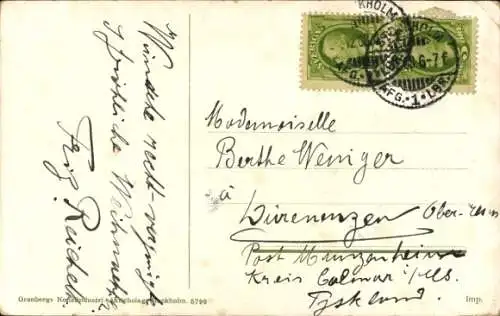 Wünsche recht vergnügte
& fröhliche Weihnachten
Frz. Reichelt
SVERIGE
KHOLM
6-7 F
AFG. 1 LBR.
Mademoiselle
Berthe Weniger
à
Dürenenzen Ober-
Post Munzenheim
Kreis Colmar i/Els.
Tyskland.
Granbergs Stockholm. 5799
Imp.